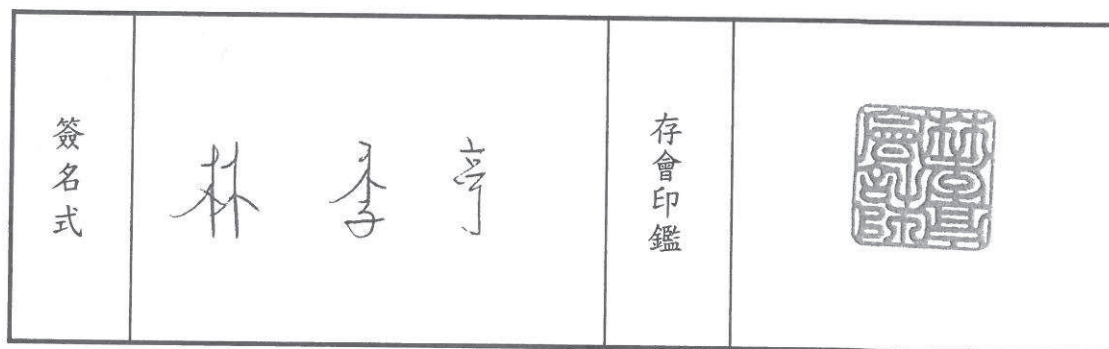 簽名式
林季亭
存會印鑑
林季亭會計師